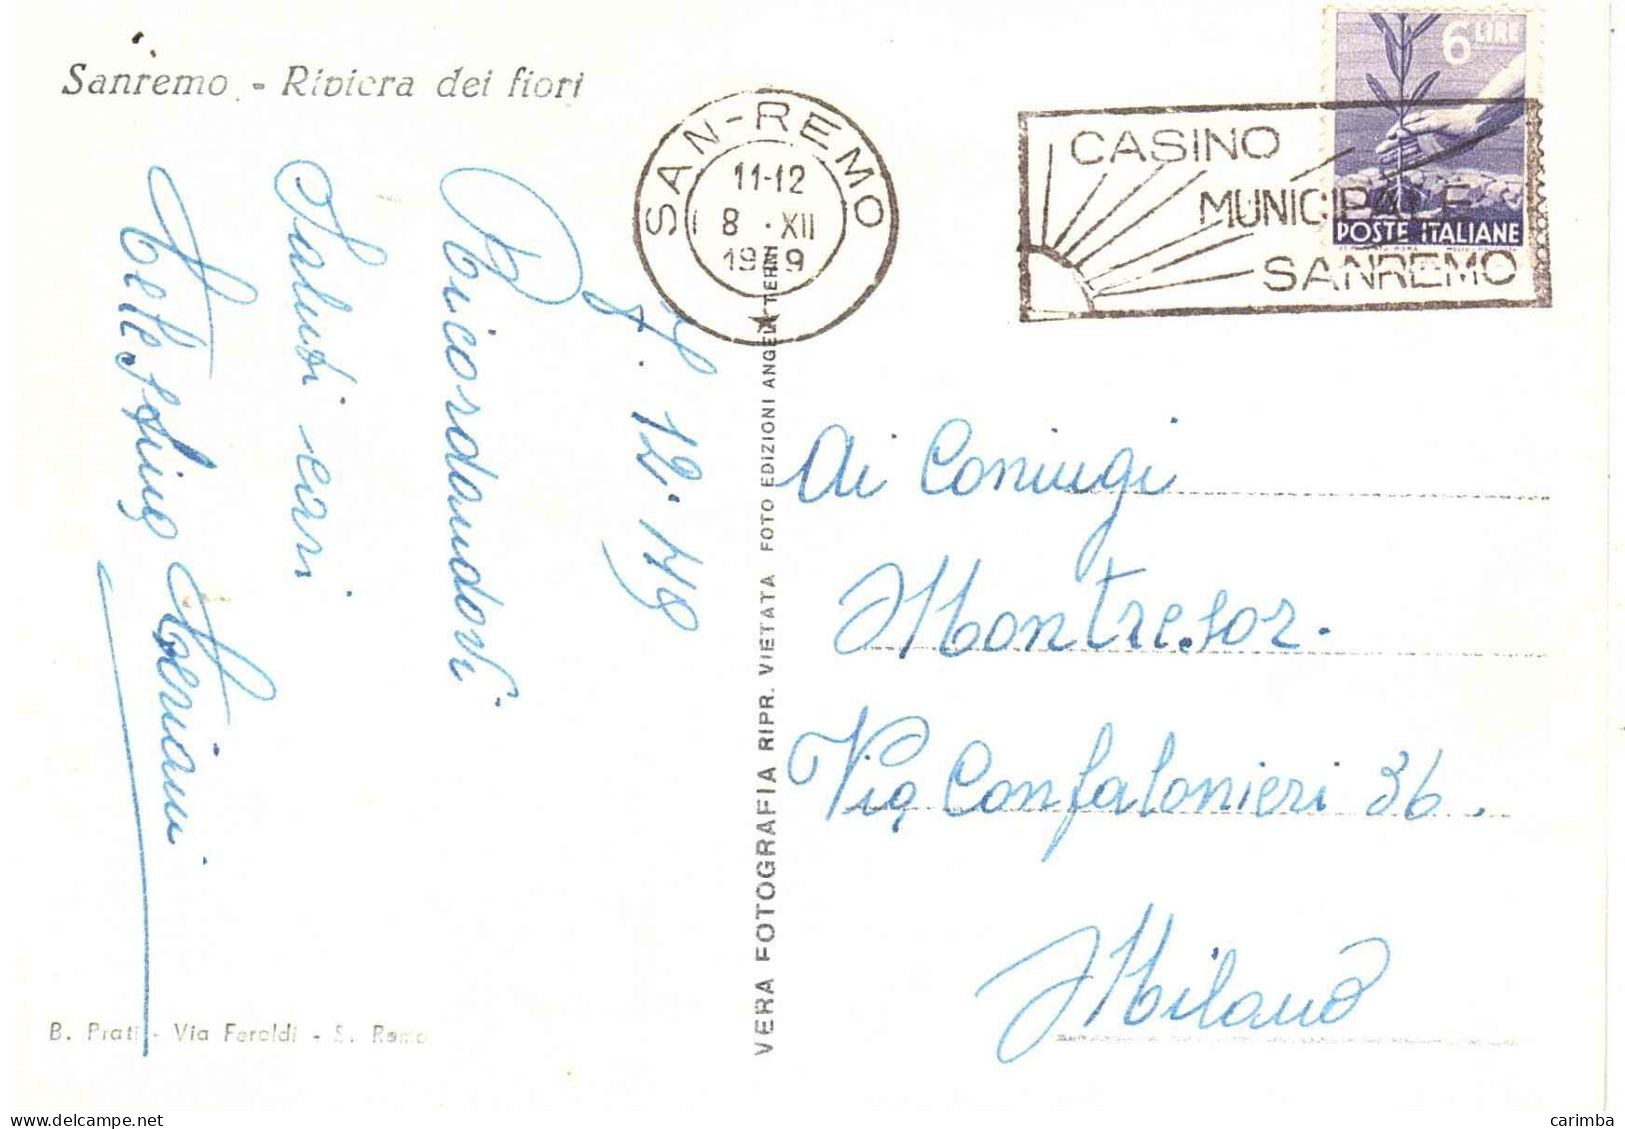 Sanremo - Riviera dei fiori
SAN-REMO
11-12
8 · XII
CASINO
MUNICIPALE
SANREMO
6 LIRE
POSTE ITALIANE
12.49
Ricordandovi
Saluti cari
Ai Coniugi
Montresor.
Via Confalonieri 36.
Milano
VERA FOTOGRAFIA RIPR. VIETATA FOTO EDIZIONI ANGELI TERNI
B. Prati - Via Feraldi - S. Remo
carimba